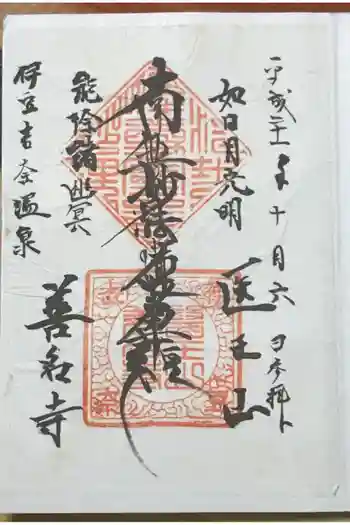 平成二十一年十月六日参拝
如日月光明
医王山
南無妙法蓮華経
能除諸幽冥
伊豆吉奈温泉
善名寺